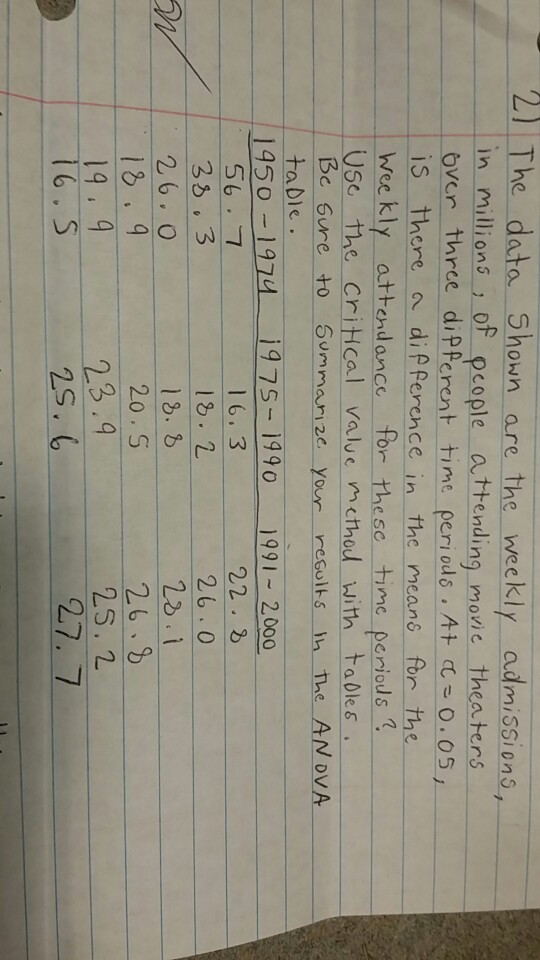 2) The data shown are the weekly admissions,
in millions, of people attending movie theaters
over three different time periods. At α = 0.05,
is there a difference in the means for the
weekly attendance for these time periods?
Use the critical value method with tables.
Be sure to summarize your results in the ANOVA
table.
1950-1974 1975-1990 1991-2000
56.7 16.3 22.8
38.3 18.2 26.0
26.0 18.8 28.1
18.9 20.5 26.8
19.9 23.9 25.2
16.5 25.6 27.7